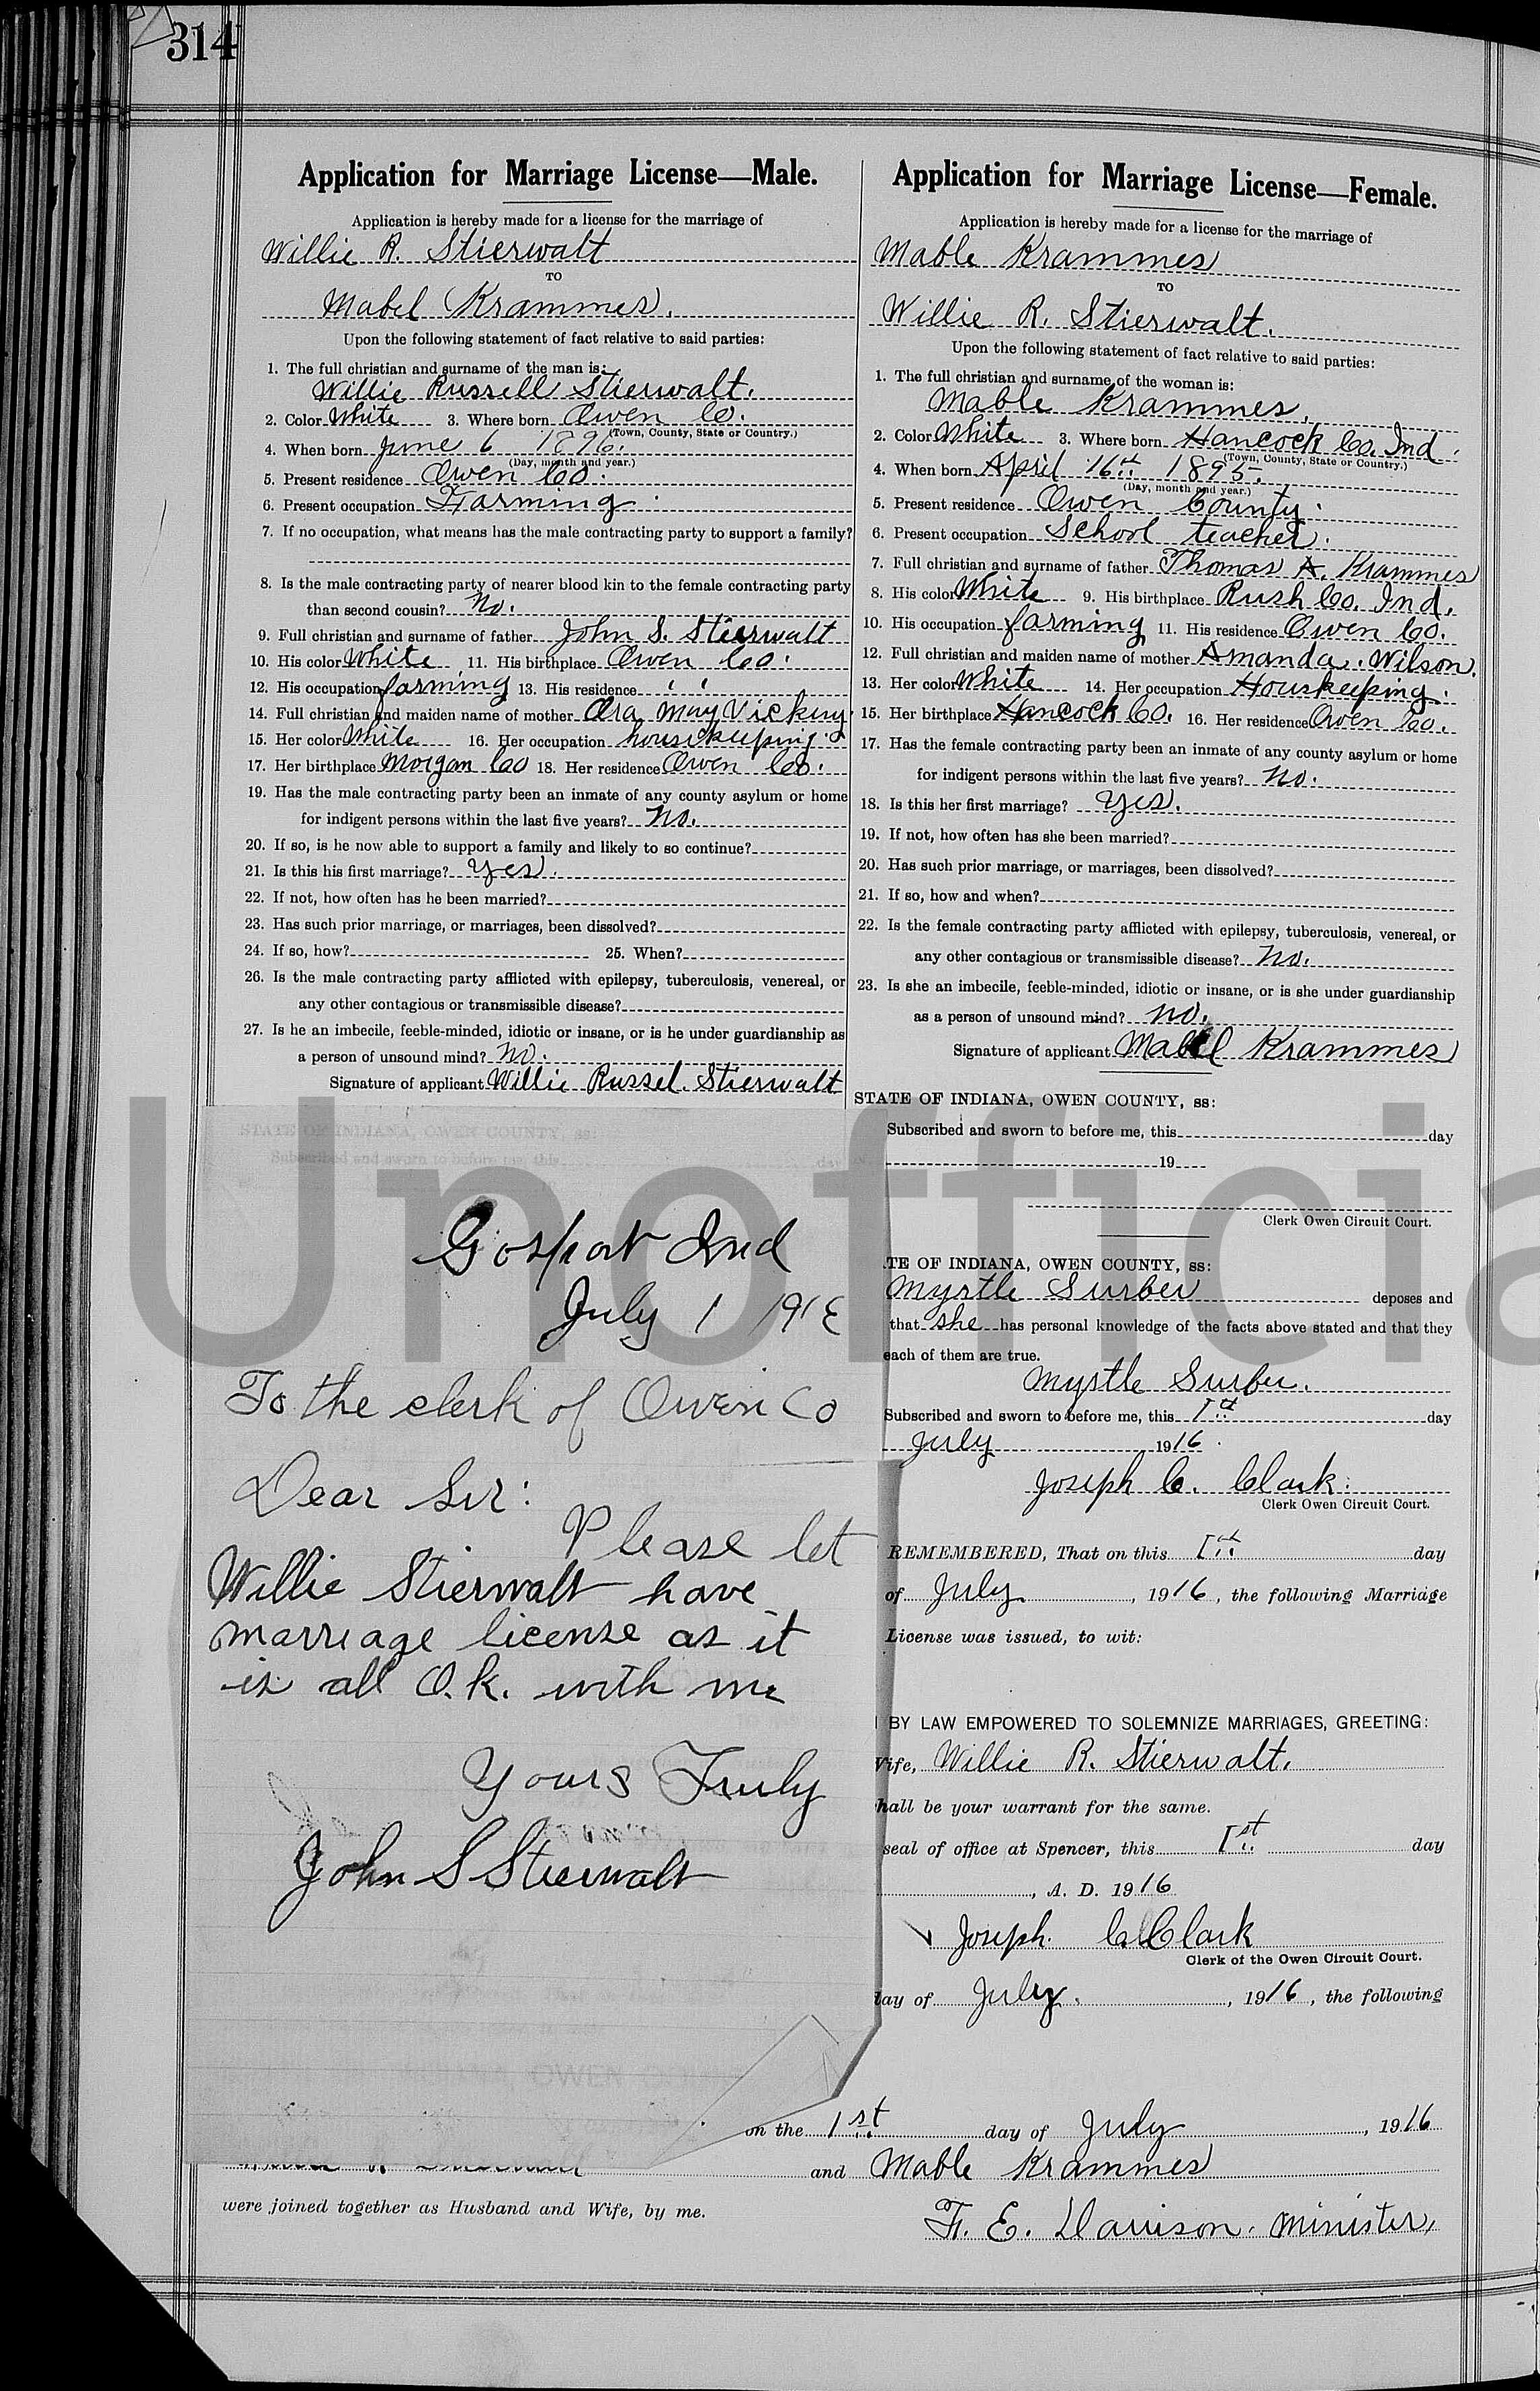 314
Application for Marriage License—Male.
Application is hereby made for a license for the marriage of
Willie R. Stierwalt
TO
Mabel Krammes.
Upon the following statement of fact relative to said parties:
1. The full christian and surname of the man is:
Willie Russell Stierwalt.
2. Color White 3. Where born Owen Co.
(Town, County, State or Country.)
4. When born June 6 1896.
(Day, month and year.)
5. Present residence Owen Co.
6. Present occupation Farming
7. If no occupation, what means has the male contracting party to support a family?
8. Is the male contracting party of nearer blood kin to the female contracting party
than second cousin? No.
9. Full christian and surname of father John S. Stierwalt
10. His color White 11. His birthplace Owen Co.
12. His occupation farming 13. His residence " "
14. Full christian and maiden name of mother Ora May Vickery
15. Her color White 16. Her occupation housekeeping
17. Her birthplace Morgan Co 18. Her residence Owen Co.
19. Has the male contracting party been an inmate of any county asylum or home
for indigent persons within the last five years? No.
20. If so, is he now able to support a family and likely to so continue?
21. Is this his first marriage? Yes.
22. If not, how often has he been married?
23. Has such prior marriage, or marriages, been dissolved?
24. If so, how? 25. When?
26. Is the male contracting party afflicted with epilepsy, tuberculosis, venereal, or
any other contagious or transmissible disease?
27. Is he an imbecile, feeble-minded, idiotic or insane, or is he under guardianship as
a person of unsound mind? No.
Signature of applicant Willie Russel Stierwalt
STATE OF INDIANA, OWEN COUNTY, ss:
Subscribed and sworn to before me, this day
Gosport Ind
July 1 191
To the clerk of Owen Co
Dear Sir:
Please let
Willie Stierwalt have
marriage license as it
is all O.K. with me
Yours Truly
John S Stierwalt
Application for Marriage License—Female.
Application is hereby made for a license for the marriage of
Mable Krammes
TO
Willie R. Stierwalt.
Upon the following statement of fact relative to said parties:
1. The full christian and surname of the woman is:
Mable Krammes.
2. Color White 3. Where born Hancock Co. Ind.
(Town, County, State or Country.)
4. When born April 16th 1895.
(Day, month and year.)
5. Present residence Owen County.
6. Present occupation School teacher.
7. Full christian and surname of father Thomas A. Krammes
8. His color White 9. His birthplace Rush Co. Ind.
10. His occupation farming 11. His residence Owen Co.
12. Full christian and maiden name of mother Amanda Wilson.
13. Her color White 14. Her occupation Houskeeping.
15. Her birthplace Hancock Co. 16. Her residence Owen Co.
17. Has the female contracting party been an inmate of any county asylum or home
for indigent persons within the last five years? No.
18. Is this her first marriage? Yes.
19. If not, how often has she been married?
20. Has such prior marriage, or marriages, been dissolved?
21. If so, how and when?
22. Is the female contracting party afflicted with epilepsy, tuberculosis, venereal, or
any other contagious or transmissible disease? No.
23. Is she an imbecile, feeble-minded, idiotic or insane, or is she under guardianship
as a person of unsound mind? No.
Signature of applicant Mabel Krammes
STATE OF INDIANA, OWEN COUNTY, ss:
Subscribed and sworn to before me, this day
19
Clerk Owen Circuit Court.
TE OF INDIANA, OWEN COUNTY, ss:
Myrtle Surber deposes and
that she has personal knowledge of the facts above stated and that they
each of them are true.
Myrtle Surber.
Subscribed and sworn to before me, this 1st day
July 1916.
Joseph C. Clark.
Clerk Owen Circuit Court.
REMEMBERED, That on this 1st day
of July, 1916, the following Marriage
License was issued, to wit:
BY LAW EMPOWERED TO SOLEMNIZE MARRIAGES, GREETING:
Wife, Willie R. Stierwalt.
hall be your warrant for the same.
seal of office at Spencer, this 1st day
, A. D. 1916
Joseph C. Clark
Clerk of the Owen Circuit Court.
day of July, 1916, the following
on the 1st day of July, 1916
and Mable Krammes
were joined together as Husband and Wife, by me.
F. E. Davison. Minister,
Unofficia